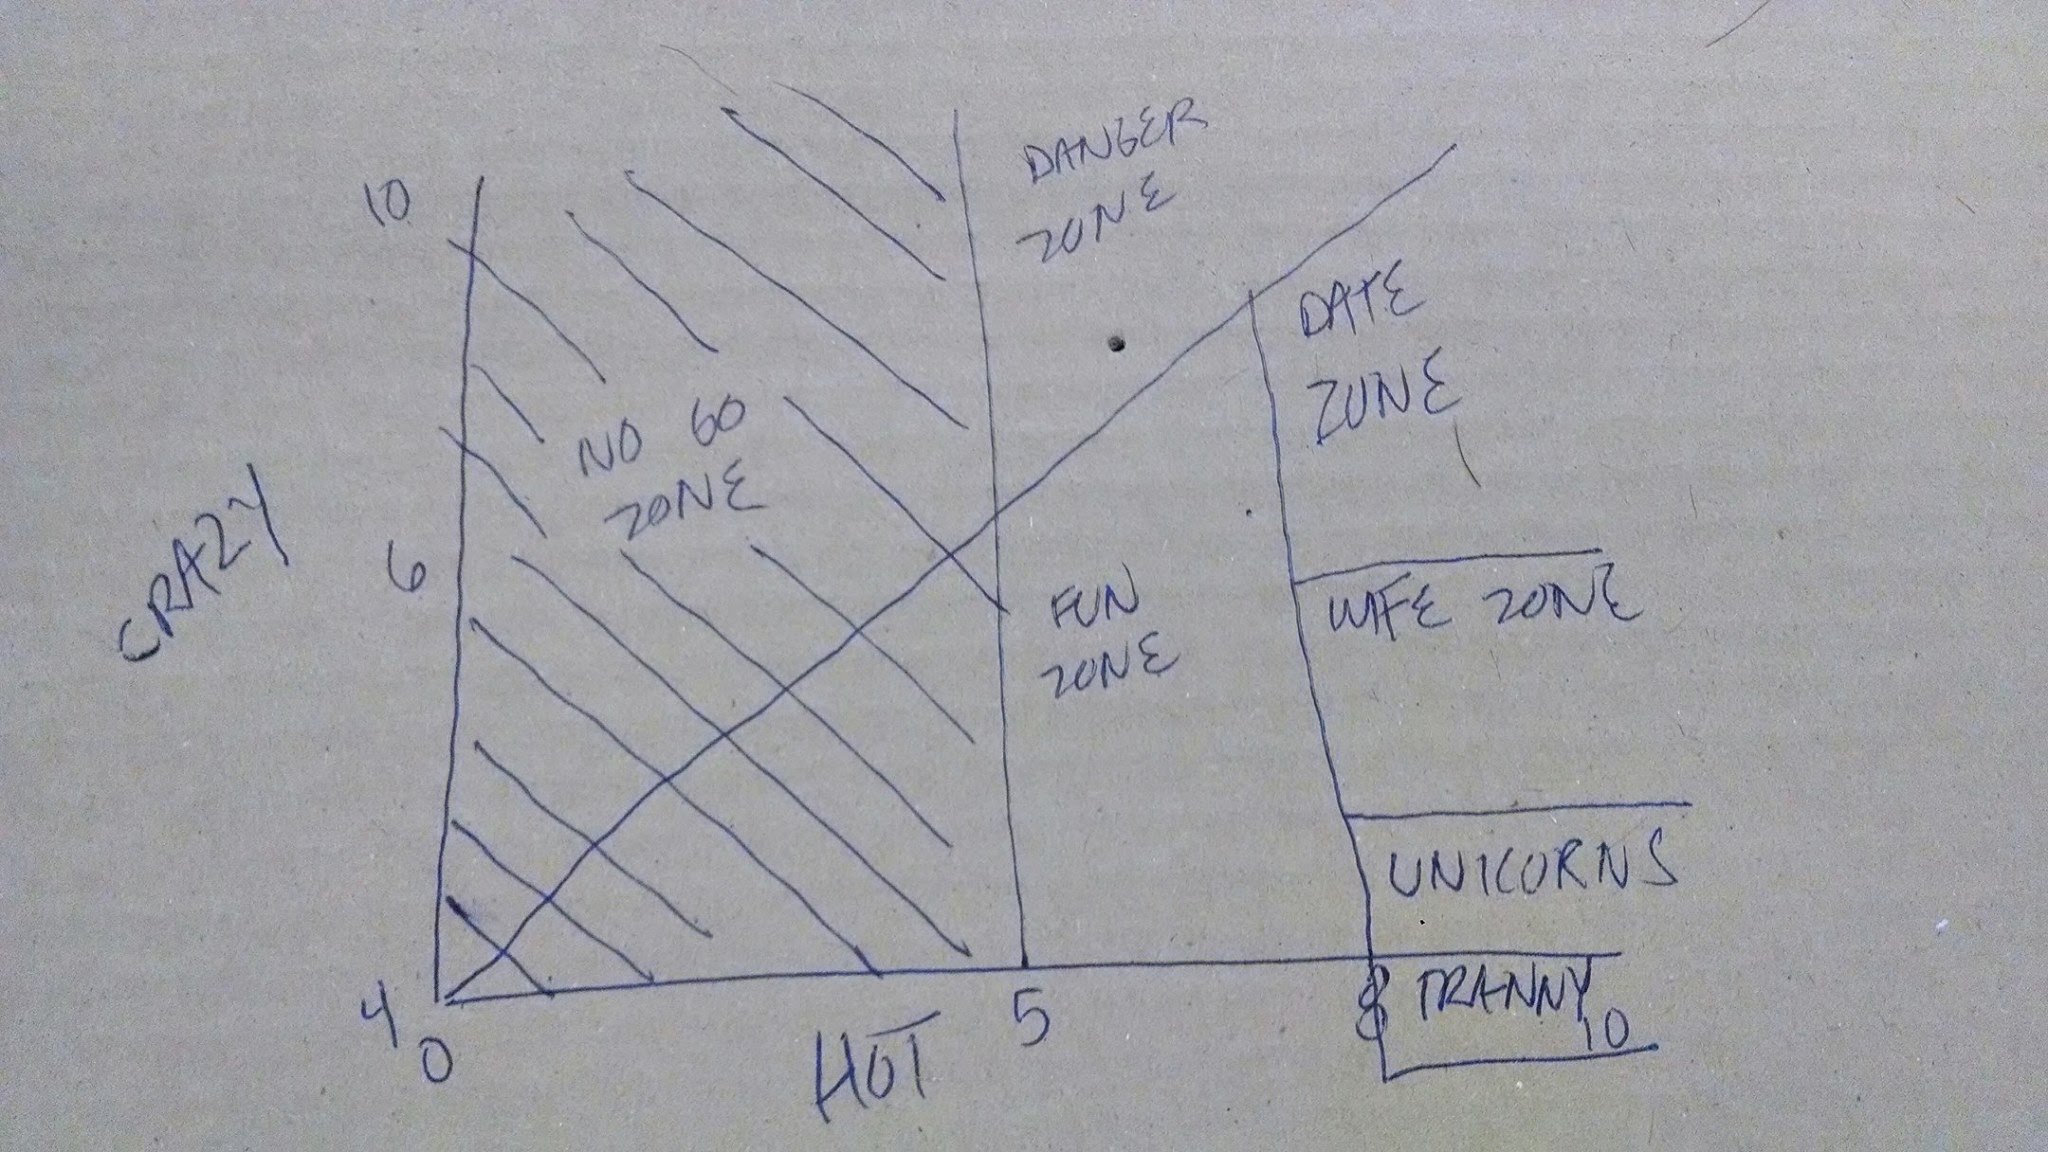 10
DANGER
ZONE
DATE
ZONE
NO GO
ZONE
CRAZY
6
FUN
ZONE
WIFE ZONE
UNICORNS
4
0
HOT
5
8
TRANNY
10